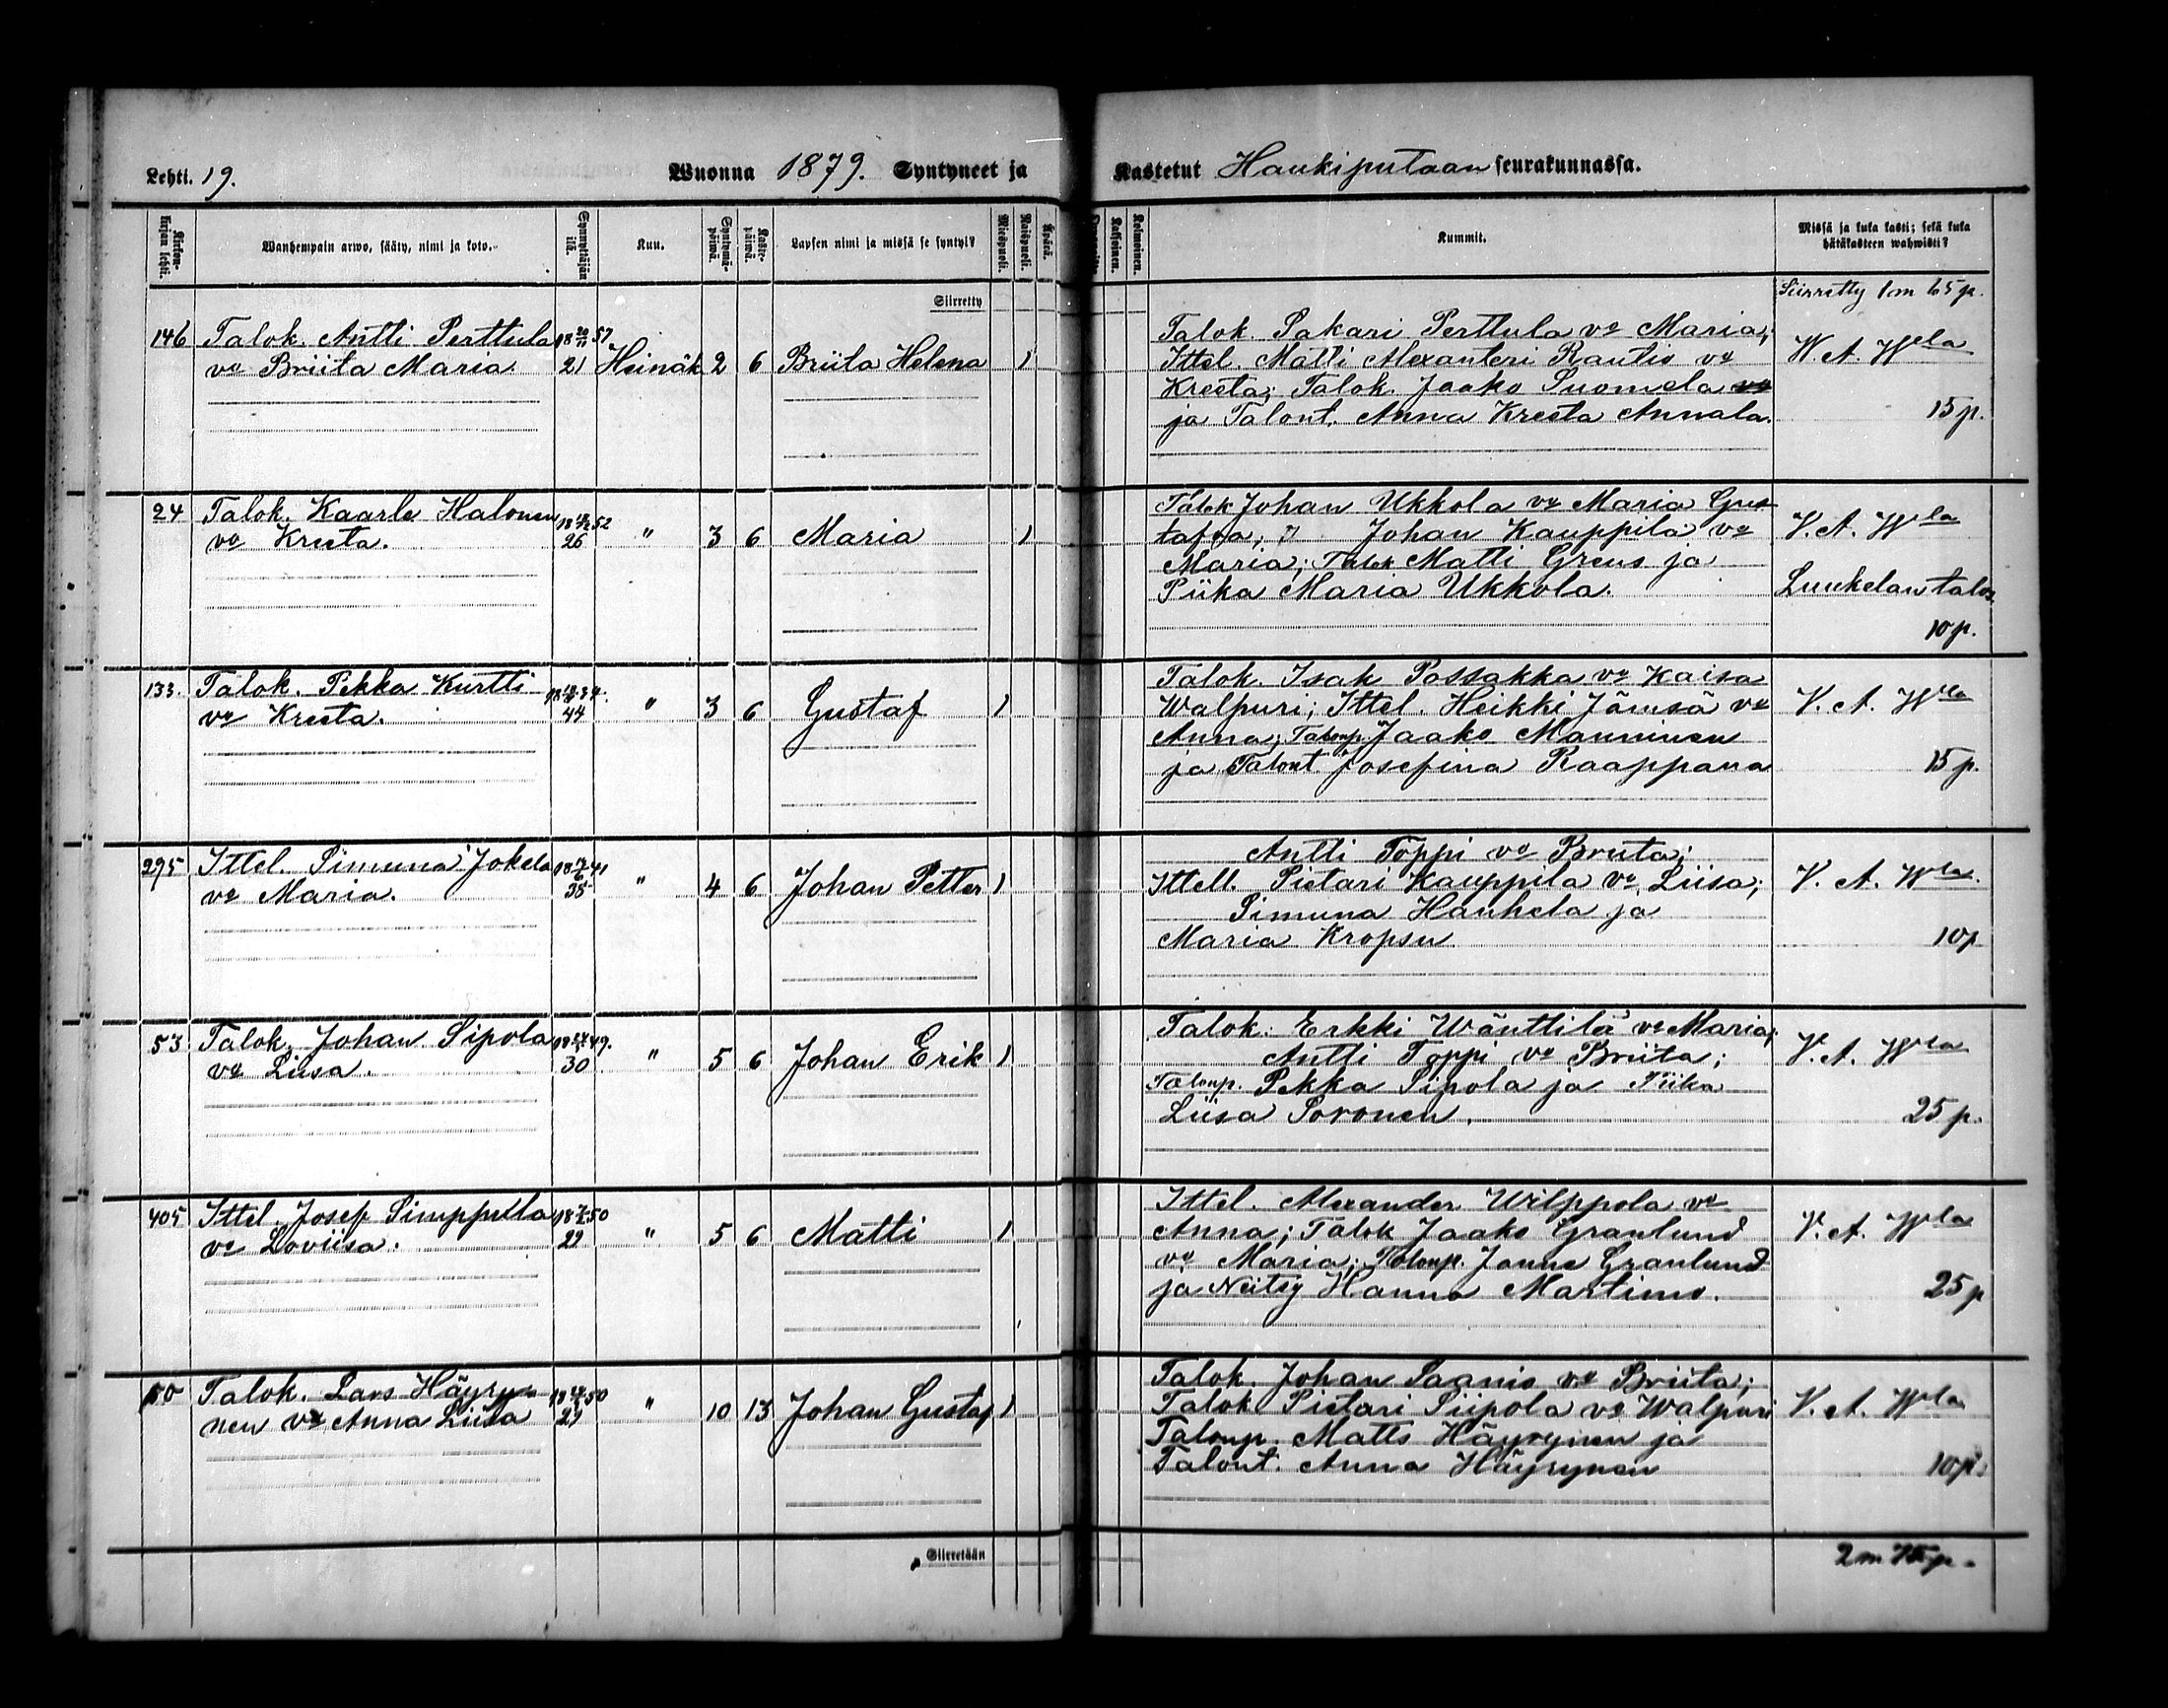 Lehti. 19.
Wuonna 1879. Syntyneet ja
Kastetut Haukiputaan seurakunnassa.
Kirkon-kirjan lehti.
Wanhempain arwo, sääty, nimi ja koto.
Synnyttäjän ikä.
Kuu.
Syntymä-päiwä.
Kaste-päiwä.
Lapsen nimi ja missä se syntyi?
Miespuoli.
Waispuoli.
Äpärä.
Kaksoinen.
Kolmoinen.
Kummit.
Missä ja kuka kasti; sekä kuka
hätäkasteen wahwisti?
Siirretty
Siirretty 1m 65 p.
146 Talok. Antti Perttula 18 20/11 57
va Briita Maria. 21 Heinäk. 2 6 Briita Helena 1
Talok. Sakari Perttula va Maria;
Ittel. Matti Alexanteri Rautio va
Kreeta; Talok. Jaako Suomela va
ja Talont. Anna Kreeta Annala.
W. A. Wla
15 p.
24 Talok. Kaarle Halonen 18 52
va Kreeta. 26 " 3 6 Maria 1
Talok Johan Ukkola va Maria Gus
tafva; Johan Kauppila va
Maria; Talok Matti Greus ja
Piika Maria Ukkola.
V. A. Wla
Luukelan talos.
10 p.
133. Talok. Pekka Kurtti 34.
va Kreeta. 44 " 3 6 Gustaf 1
Talok. Isak Passakka va Kaisa
Walpuri; Ittel. Heikki Jämsä va
Anna; Talonp. Jaako Manninen
ja Talont. Josefina Raappana
V. A. Wla
15 p.
295 Ittel. Simuna Jokela 18 41
va Maria. 38 " 4 6 Johan Petter 1
Antti Toppi va Briita;
Ittell. Pietari Kauppila va Liisa;
Simuna Hanhela ja
Maria Kropsu
V. A. Wla.
10 p
53 Talok. Johan Sipola 18 49.
va Liisa. 30 " 5 6 Johan Erik 1
Talok. Erkki Wänttilä va Maria;
Antti Toppi va Briita;
Talonp. Pekka Sipola ja Piika
Liisa Soronen.
V. A. Wla
25 p.
405 Ittel. Josef Simppula 18 50
va Loviisa. 29 " 5 6 Matti 1
Ittel. Alexander Wilppola va
Anna; Talok Jaako Granlund
va Maria; Talonp. Janne Granlund
ja Neitsy Hanna Martimo.
V. A. Wla
25 p
50 Talok. Lars Häyry- 18 50
nen va Anna Liisa 29 " 10 13 Johan Gustaf 1
Talok. Johan Saanio va Briita;
Talok. Pietari Siipola va Walpuri
Talonp. Matts Häyrynen ja
Talont. Anna Häyrynen
V. A. Wla
10 p.
Siirretään
2 m 75 p.